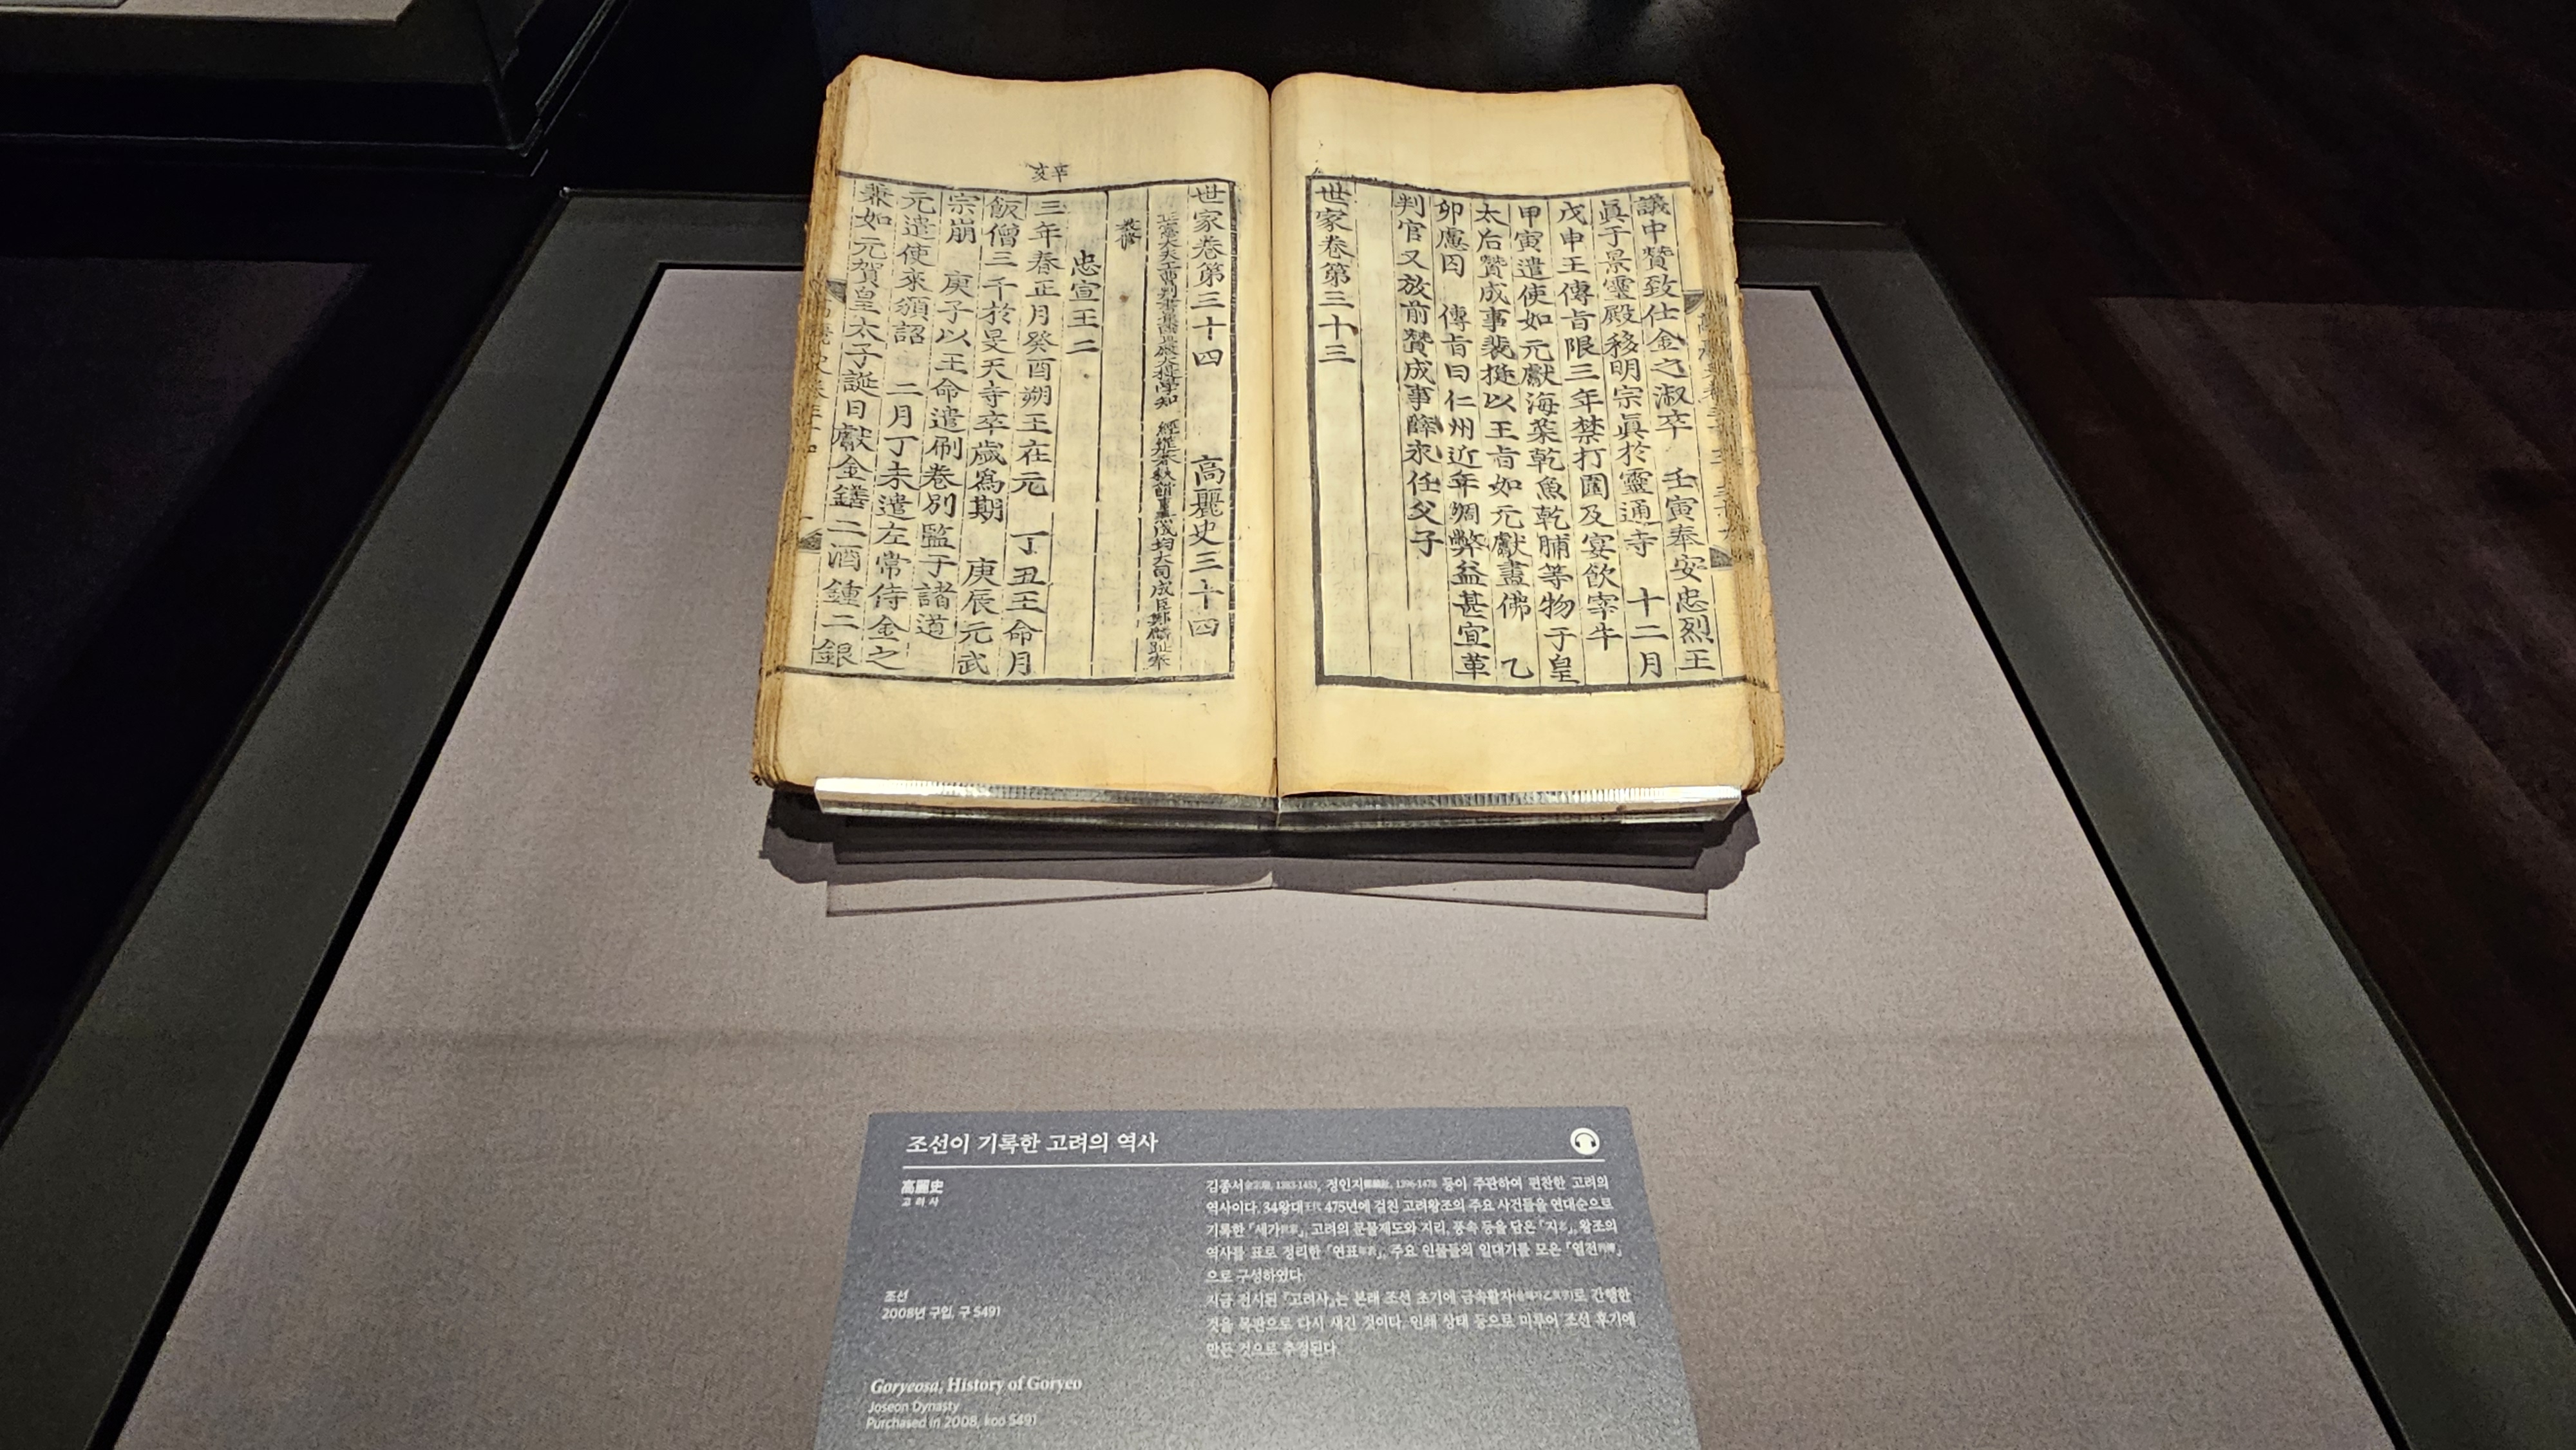 議中贊致仕金之淑卒 壬寅奉安忠烈王
眞于景靈殿移明宗眞於靈通寺 十二月
戊申王傳旨限三年禁打圍及宴飮宰牛
甲寅遣使如元獻海菜乾魚乾脯等物于皇
太后贊成事裴挺以王旨如元獻畫佛 乙
卯慮囚 傳旨曰仁州近年凋弊益甚宜革
判官又放前贊成事薛永任父子
世家卷第三十三
世家卷第三十四 高麗史三十四
正憲大夫工曹判書集賢殿大提學知 經筵春秋館事兼成均大司成臣鄭麟趾奉
敎修
忠宣王二
辛亥
三年春正月癸酉朔王在元 丁丑王命月
飯僧三千於旻天寺卒歲爲期 庚辰元武
宗崩 庚子以王命遣刷卷別監于諸道
元遣使來頒詔 二月丁未遣左常侍金之
兼如元賀皇太子誕日獻金鐥二酒鍾二銀
조선이 기록한 고려의 역사
高麗史
고려사
조선
2008년 구입, 구 5491
Goryeosa, History of Goryeo
Joseon Dynasty
Purchased in 2008, koo 5491
김종서, 1383-1453, 정인지, 1396-1478 등이 주관하여 편찬한 고려의
역사이다. 34왕대 475년에 걸친 고려왕조의 주요 사건들을 연대순으로
기록한 「세가」, 고려의 문물제도와 지리, 풍속 등을 담은 「지」, 왕조의
역사를 표로 정리한 「연표」, 주요 인물들의 일대기를 모은 「열전」
으로 구성하였다.
지금 전시된 『고려사』는 본래 조선 초기에 금속활자로 간행한
것을 목판으로 다시 새긴 것이다. 인쇄 상태 등으로 미루어 조선 후기에
만든 것으로 추정된다.